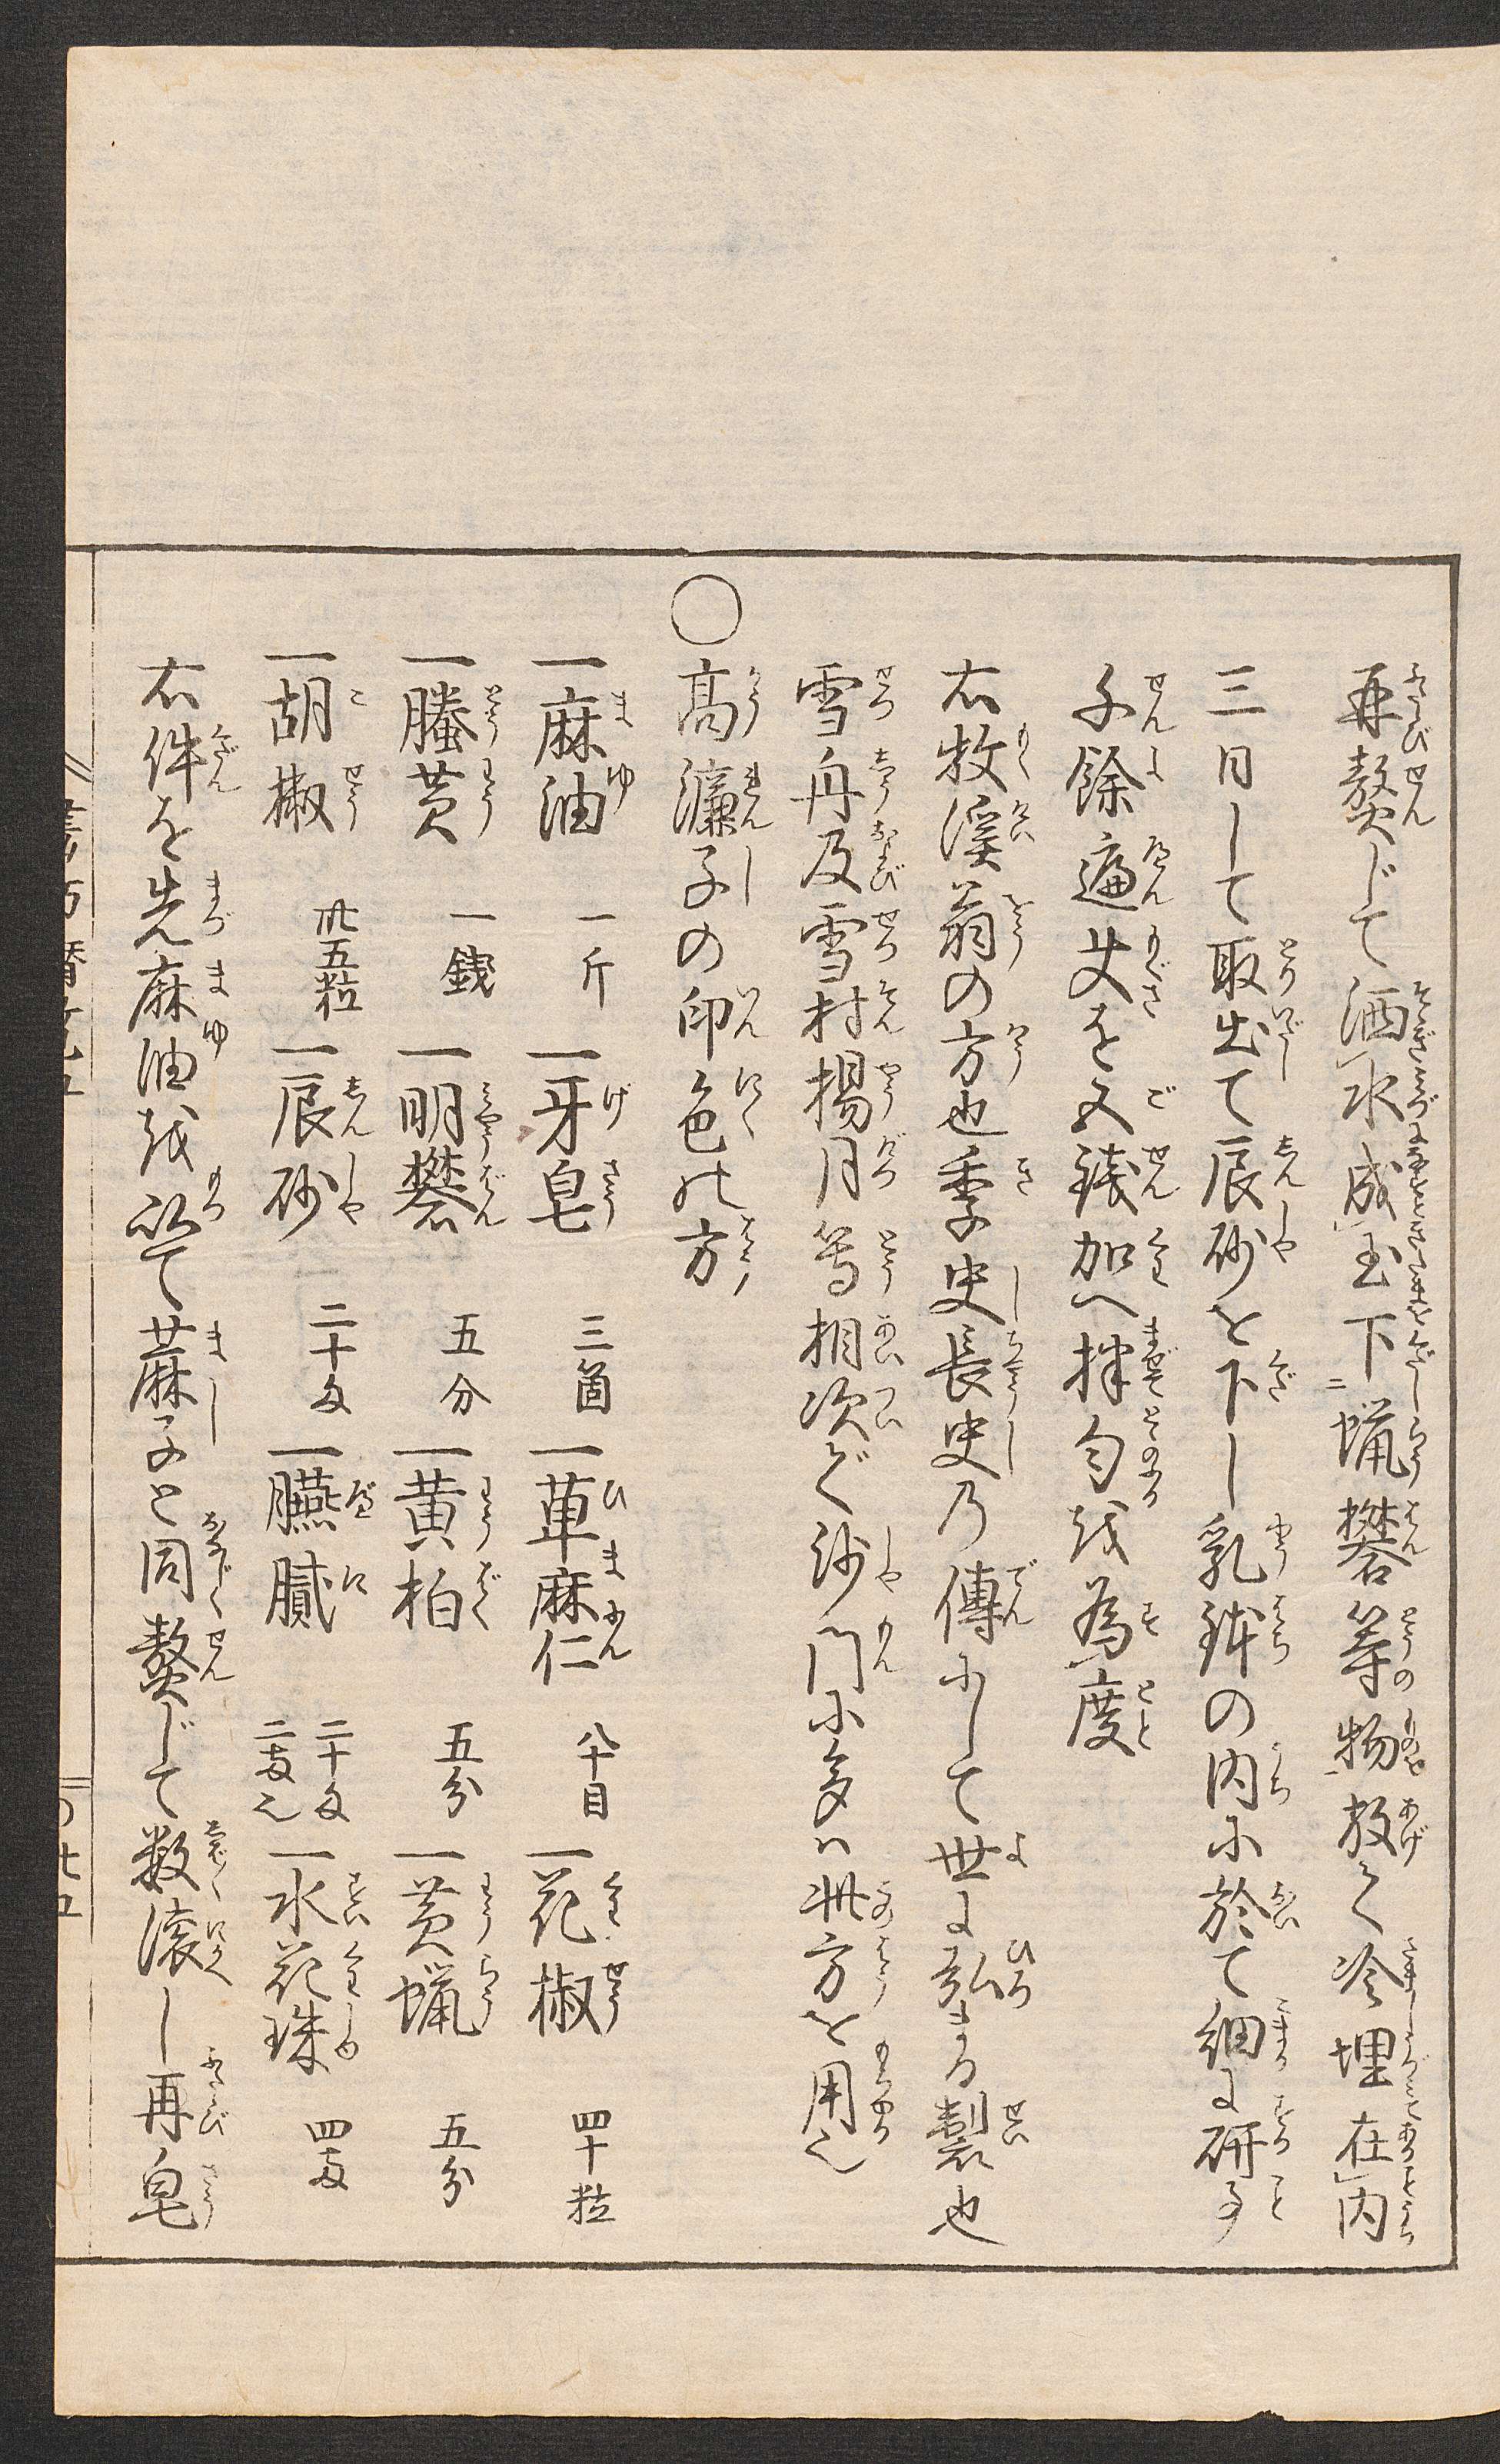 再熬じて洒水成玉下蝋礬等物放て冷埋在内
三日して取出て辰砂を下し乳鉢の内に於て細に研事
千餘遍艾を五銭加へ拌勻を為度
右牧渓翁の方也季史長史乃傳にして世に弘まる製也
雪舟及雪村揚月等相次で沙門に多は此方を用之
〇高濂子の印色の方
一麻油　一斤　一牙皂　三箇　一萆麻仁　八十目　一花椒　四十粒
一螣黄　一銭　一明礬　五分　一黄柏　五分　一黄蝋　五分
一胡椒　卅五粒　一辰砂　二十匁　一臙膩　二十匁二両之　一水花珠　四両
右件を先麻油を以て蔴子と同熬じて数滚し再皂